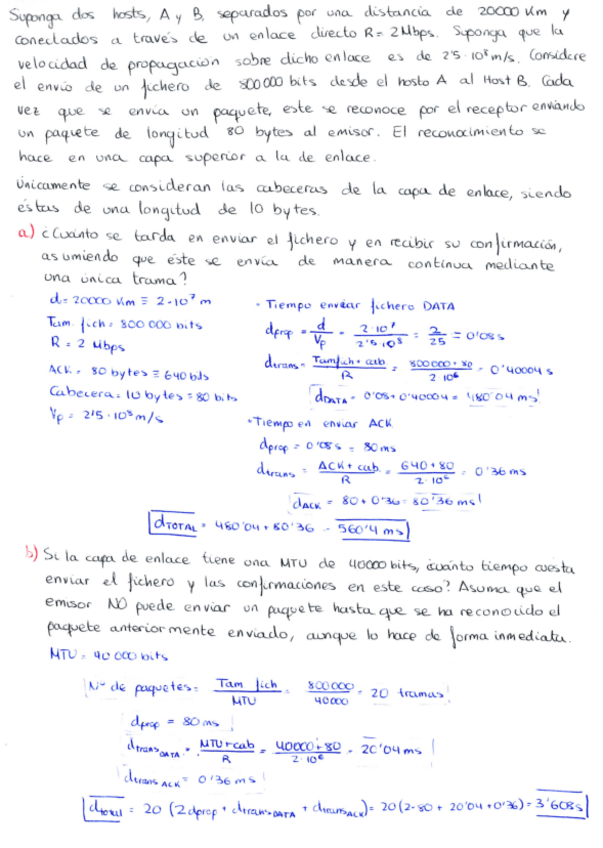 Suponga dos hosts, A y B, separados por una distancia de 20000 Km y
conectados a través de un enlace directo R= 2Mbps. Suponga que la
velocidad de propagación sobre dicho enlace es de 2'5·10⁸ m/s. Considere
el envío de un fichero de 800000 bits desde el hosto A al Host B. Cada
vez que se envía un paquete, este se reconoce por el receptor enviando
un paquete de longitud 80 bytes al emisor. El reconocimiento se
hace en una capa superior a la de enlace.
Únicamente se consideran las cabeceras de la capa de enlace, siendo
éstas de una longitud de 10 bytes.
a) ¿Cuánto se tarda en enviar el fichero y en recibir su confirmación,
asumiendo que éste se envía de manera continua mediante
una única trama?
d= 20000 Km ≡ 2·10⁷ m
Tam. fich= 800 000 bits
R = 2 Mbps
ACK = 80 bytes ≡ 640 bits
Cabecera = 10 bytes = 80 bits
Vp = 2'5·10⁸ m/s
· Tiempo enviar fichero DATA
dprop = d/Vp = 2·10⁷/2'5·10⁸ = 2/25 = 0'08 s
dtrans = Tamfich + cab/R = 800000+80/2·10⁶ = 0'40004 s
dDATA = 0'08 + 0'40004 = 480'04 ms
· Tiempo en enviar ACK
dprop = 0'08 s = 80 ms
dtrans = ACK + cab/R = 640+80/2·10⁶ = 0'36 ms
dACK = 80 + 0'36 = 80'36 ms
dTOTAL = 480'04 + 80'36 = 560'4 ms
b) Si la capa de enlace tiene una MTU de 40000 bits, ¿cuánto tiempo cuesta
enviar el fichero y las confirmaciones en este caso? Asuma que el
emisor NO puede enviar un paquete hasta que se ha reconocido el
paquete anteriormente enviado, aunque lo hace de forma inmediata.
MTU = 40 000 bits
Nº de paquetes = Tam fich/MTU = 800000/40000 = 20 tramas
dprop = 80 ms
dtransDATA = MTU + cab/R = 40000+80/2·10⁶ = 20'04 ms
dtransACK = 0'36 ms
dtotal = 20 (2dprop + dtransDATA + dtransACK) = 20 (2·80 + 20'04 + 0'36) = 3'608 s